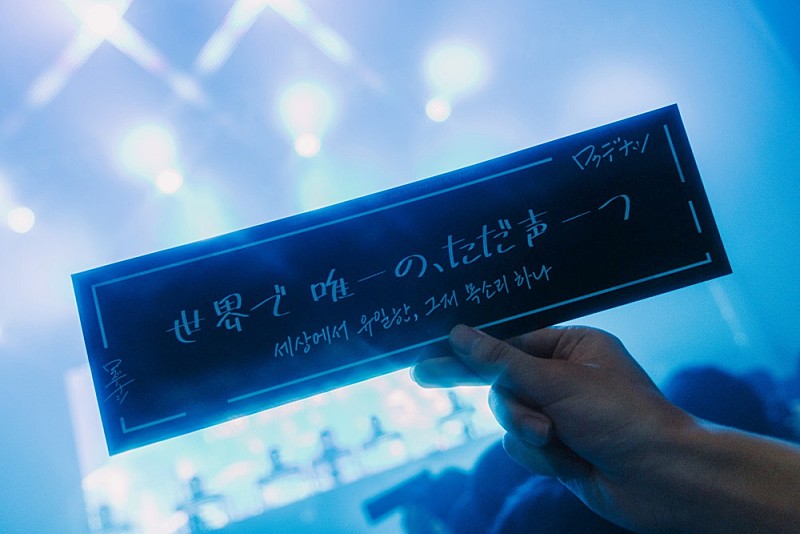 ロクデナシ
世界で 唯一の、ただ声一つ
세상에서 유일한, 그저 목소리 하나